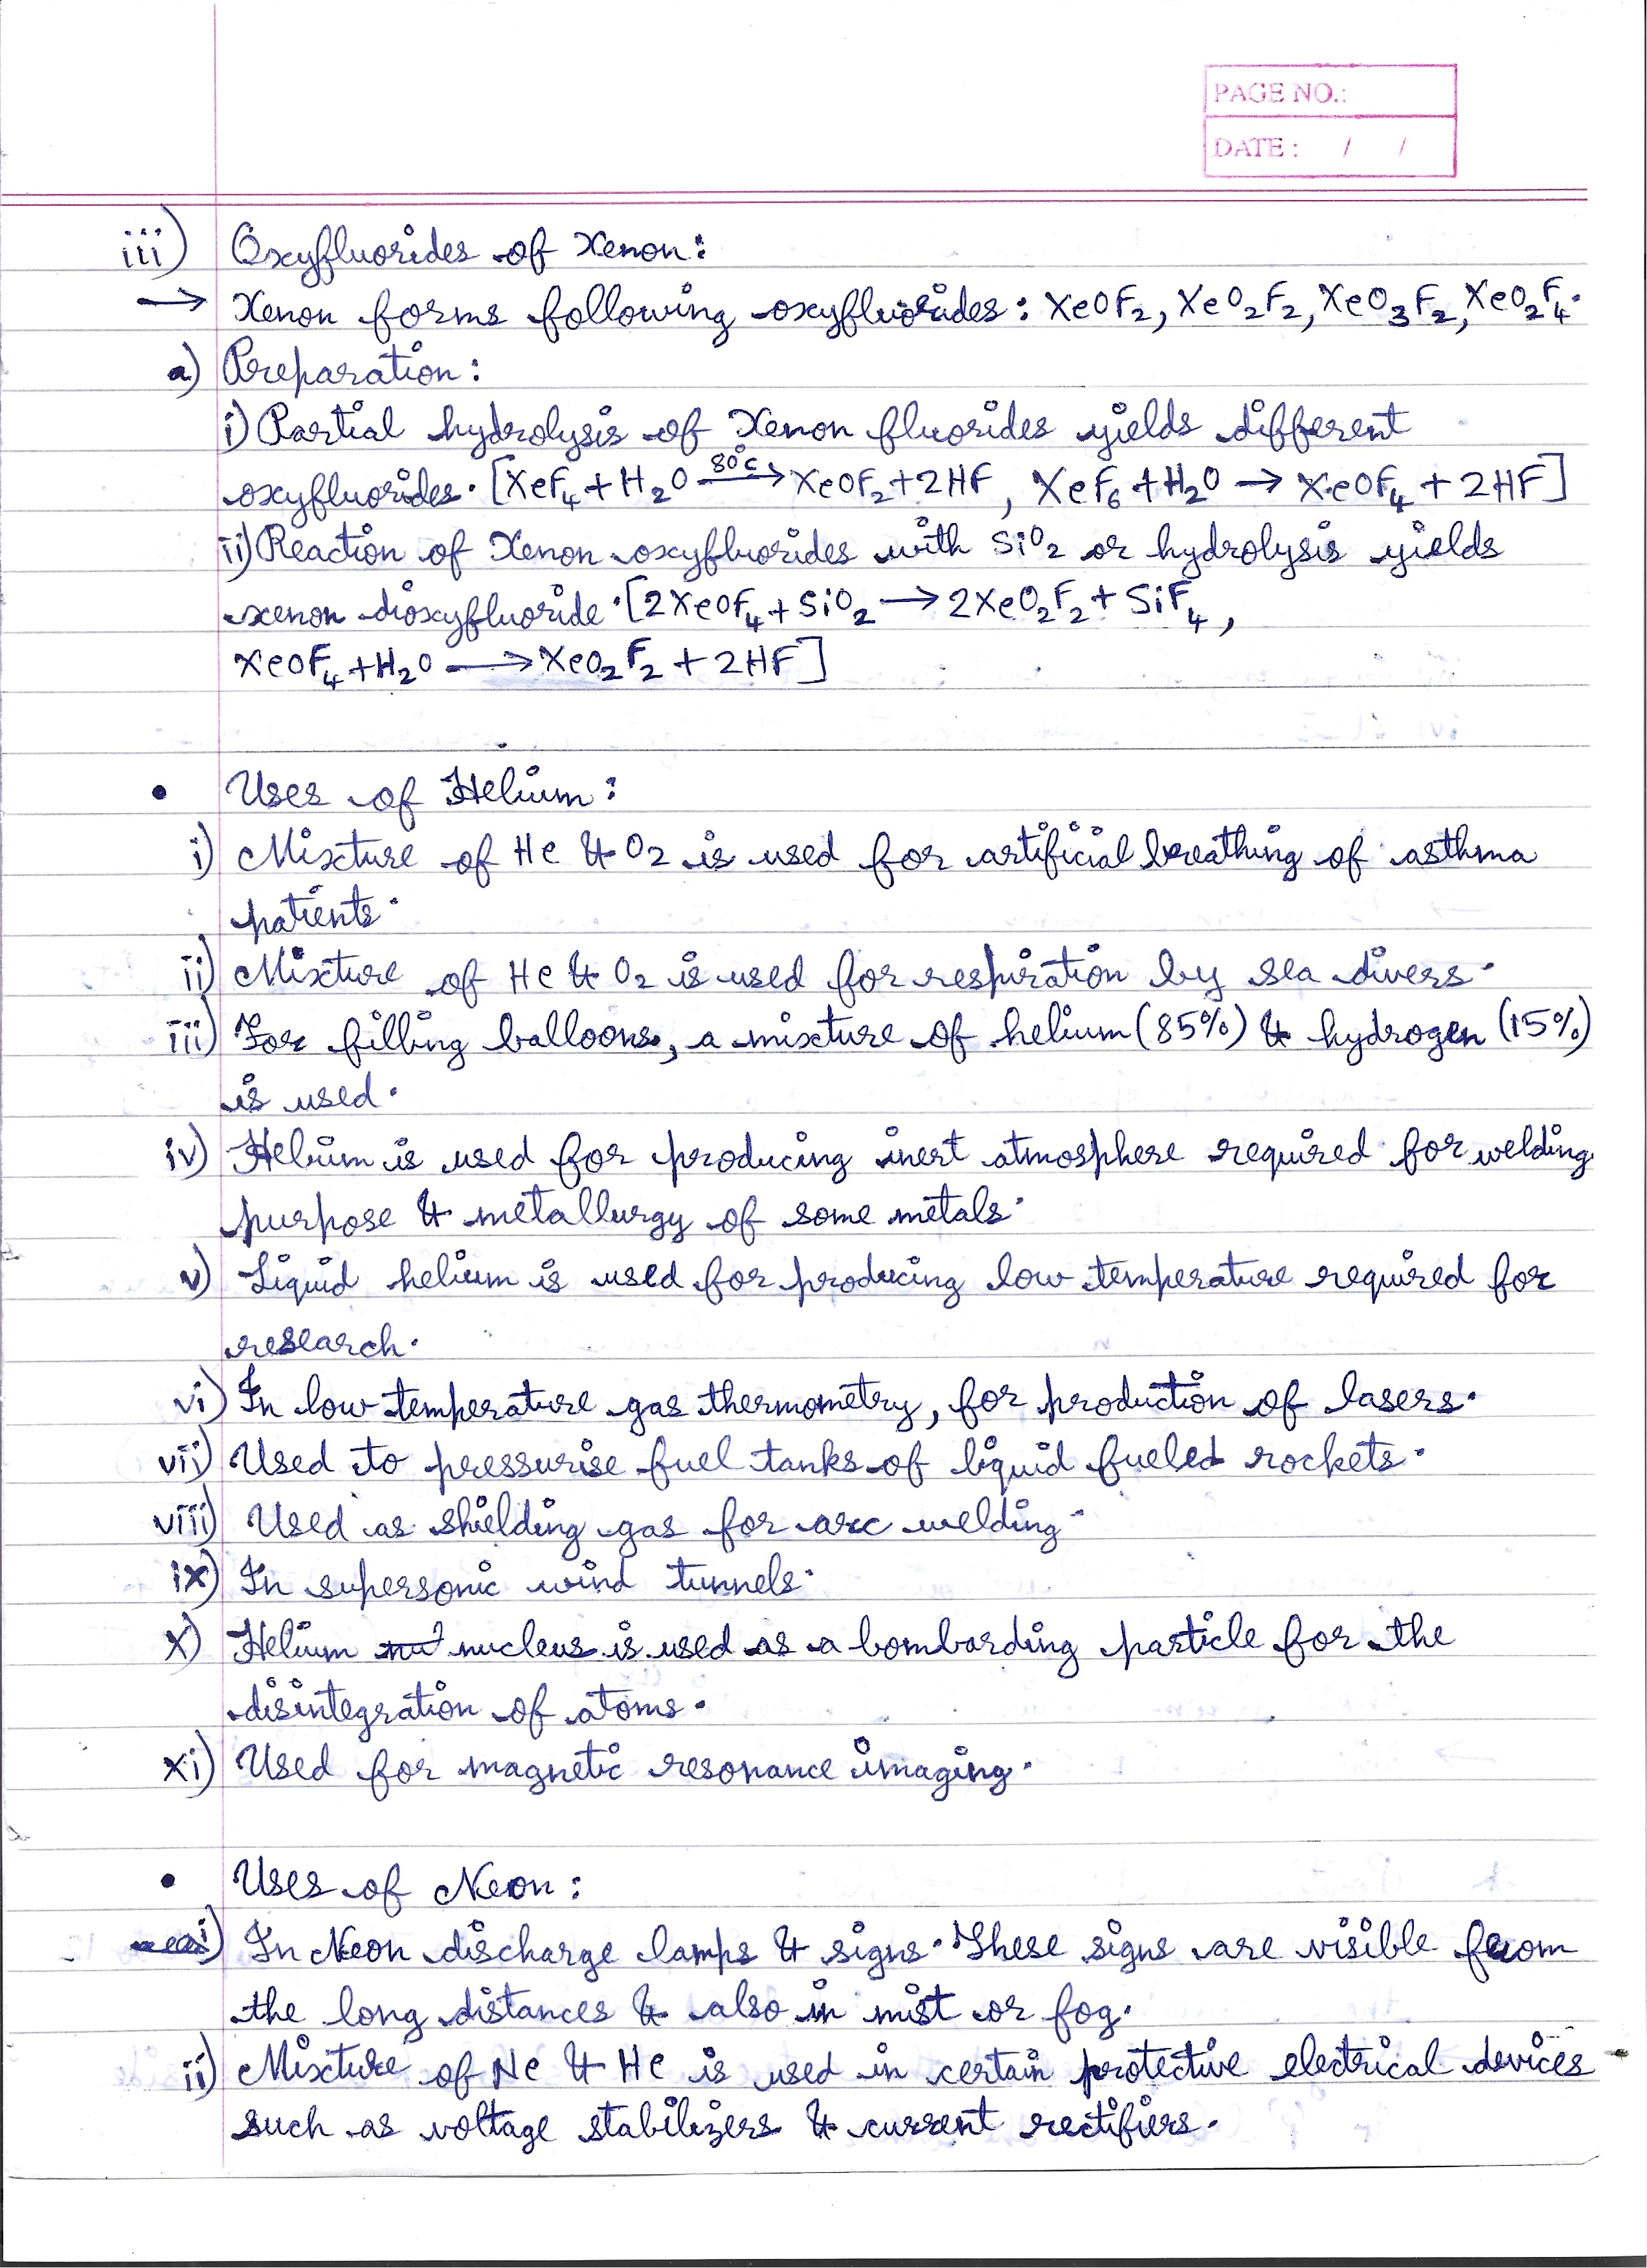 PAGE NO.:
DATE: / /
iii) Oxyfluorides of Xenon:
→ Xenon forms following oxyfluorides: XeOF₂, XeO₂F₂, XeO₃F₂, XeO₂F₄.
a) Preparation:
i) Partial hydrolysis of Xenon fluorides yields different
oxyfluorides. [XeF₄ + H₂O 80°C→ XeOF₂ + 2HF, XeF₆ + H₂O → XeOF₄ + 2HF]
ii) Reaction of Xenon oxyfluorides with SiO₂ or hydrolysis yields
xenon dioxyfluoride. [2XeOF₄ + SiO₂ → 2XeO₂F₂ + SiF₄,
XeOF₄ + H₂O → XeO₂F₂ + 2HF]
• Uses of Helium:
i) Mixture of He & O₂ is used for artificial breathing of asthma
patients.
ii) Mixture of He & O₂ is used for respiration by sea divers.
iii) For filling balloons, a mixture of helium (85%) & hydrogen (15%)
is used.
iv) Helium is used for producing inert atmosphere required for welding
purpose & metallurgy of some metals.
v) Liquid helium is used for producing low temperature required for
research.
vi) In low temperature gas thermometry, for production of lasers.
vii) Used to pressurise fuel tanks of liquid fueled rockets.
viii) Used as shielding gas for arc welding.
ix) In supersonic wind tunnels.
x) Helium nucleus is used as a bombarding particle for the
disintegration of atoms.
xi) Used for magnetic resonance imaging.
• Uses of Neon:
i) In Neon discharge lamps & signs. These signs are visible from
the long distances & also in mist or fog.
ii) Mixture of Ne & He is used in certain protective electrical devices
such as voltage stabilizers & current rectifiers.